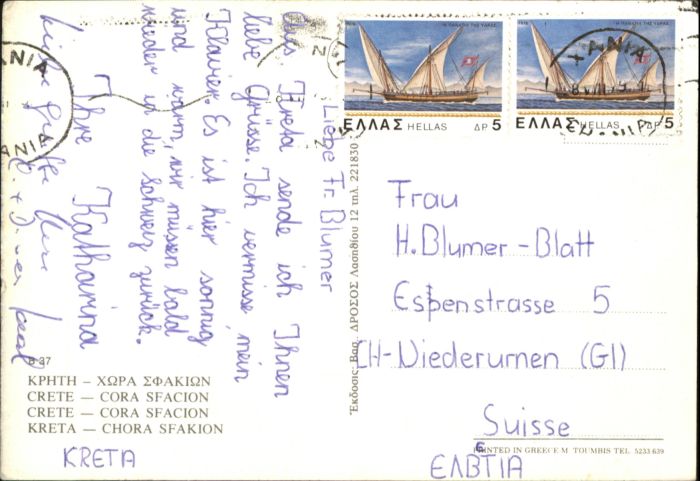 Liebe Fr. Blumer
Aus Kreta sende ich Ihnen
liebe Grüsse. Ich vermisse mein
Klavier. Es ist hier sonnig
und warm, wir müssen bald
wieder in die Schweiz zurück.
Ihre Katharina
Liebe Grüsse Ihre
B-37
ΚΡΗΤΗ – ΧΩΡΑ ΣΦΑΚΙΩΝ
CRETE – CORA SFACION
CRETE – CORA SFACION
KRETA – CHORA SFAKION
KRETA
Έκδοσις: Βαρ. ΔΡΟΣΟΣ Λασηθίου 12 τηλ. 221830
1978 "Η ΠΑΝΑΓΙΑ ΤΗΣ ΥΔΡΑΣ"
ΕΛΛΑΣ HELLAS ΔΡ 5
1978 "Η ΠΑΝΑΓΙΑ ΤΗΣ ΥΔΡΑΣ"
ΕΛΛΑΣ HELLAS ΔΡ 5
ΧΑΝΙΑ
ΧΑΝΙΑ
Frau
H. Blumer-Blatt
Espenstrasse 5
CH-Niederurnen (Gl)
Suisse
PRINTED IN GREECE M TOUMBIS TEL 5233 639
ΕΛΒΕΤΙΑ